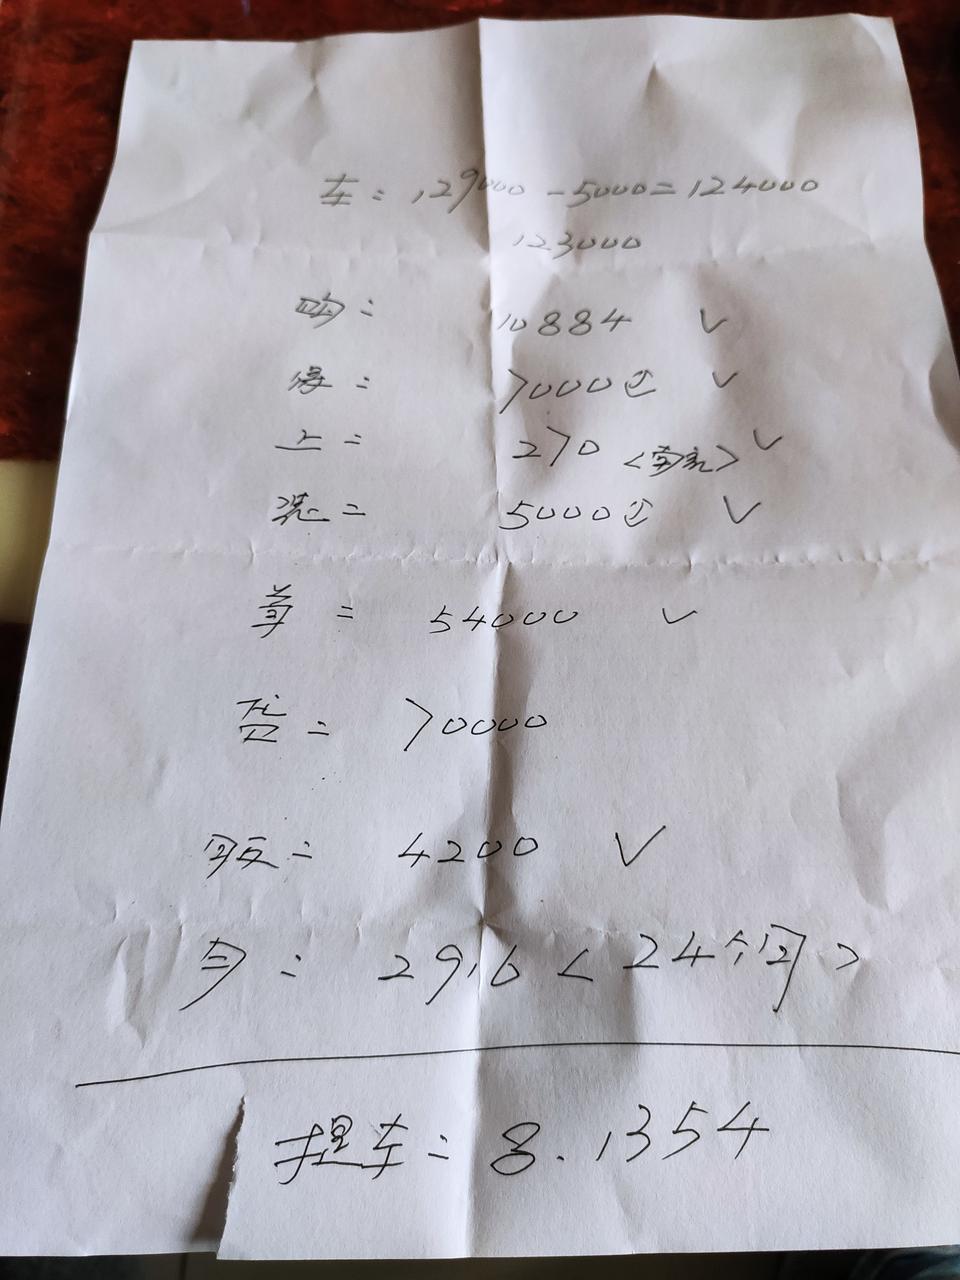 车: 129000-5000=124000
123000
购: 10884 ✓
保: 7000 ✓
上: 270 ✓
5000 ✓
首: 54000 ✓
贷: 70000
4200 ✓
月: 2916 <24个月>
提车: 8.1354